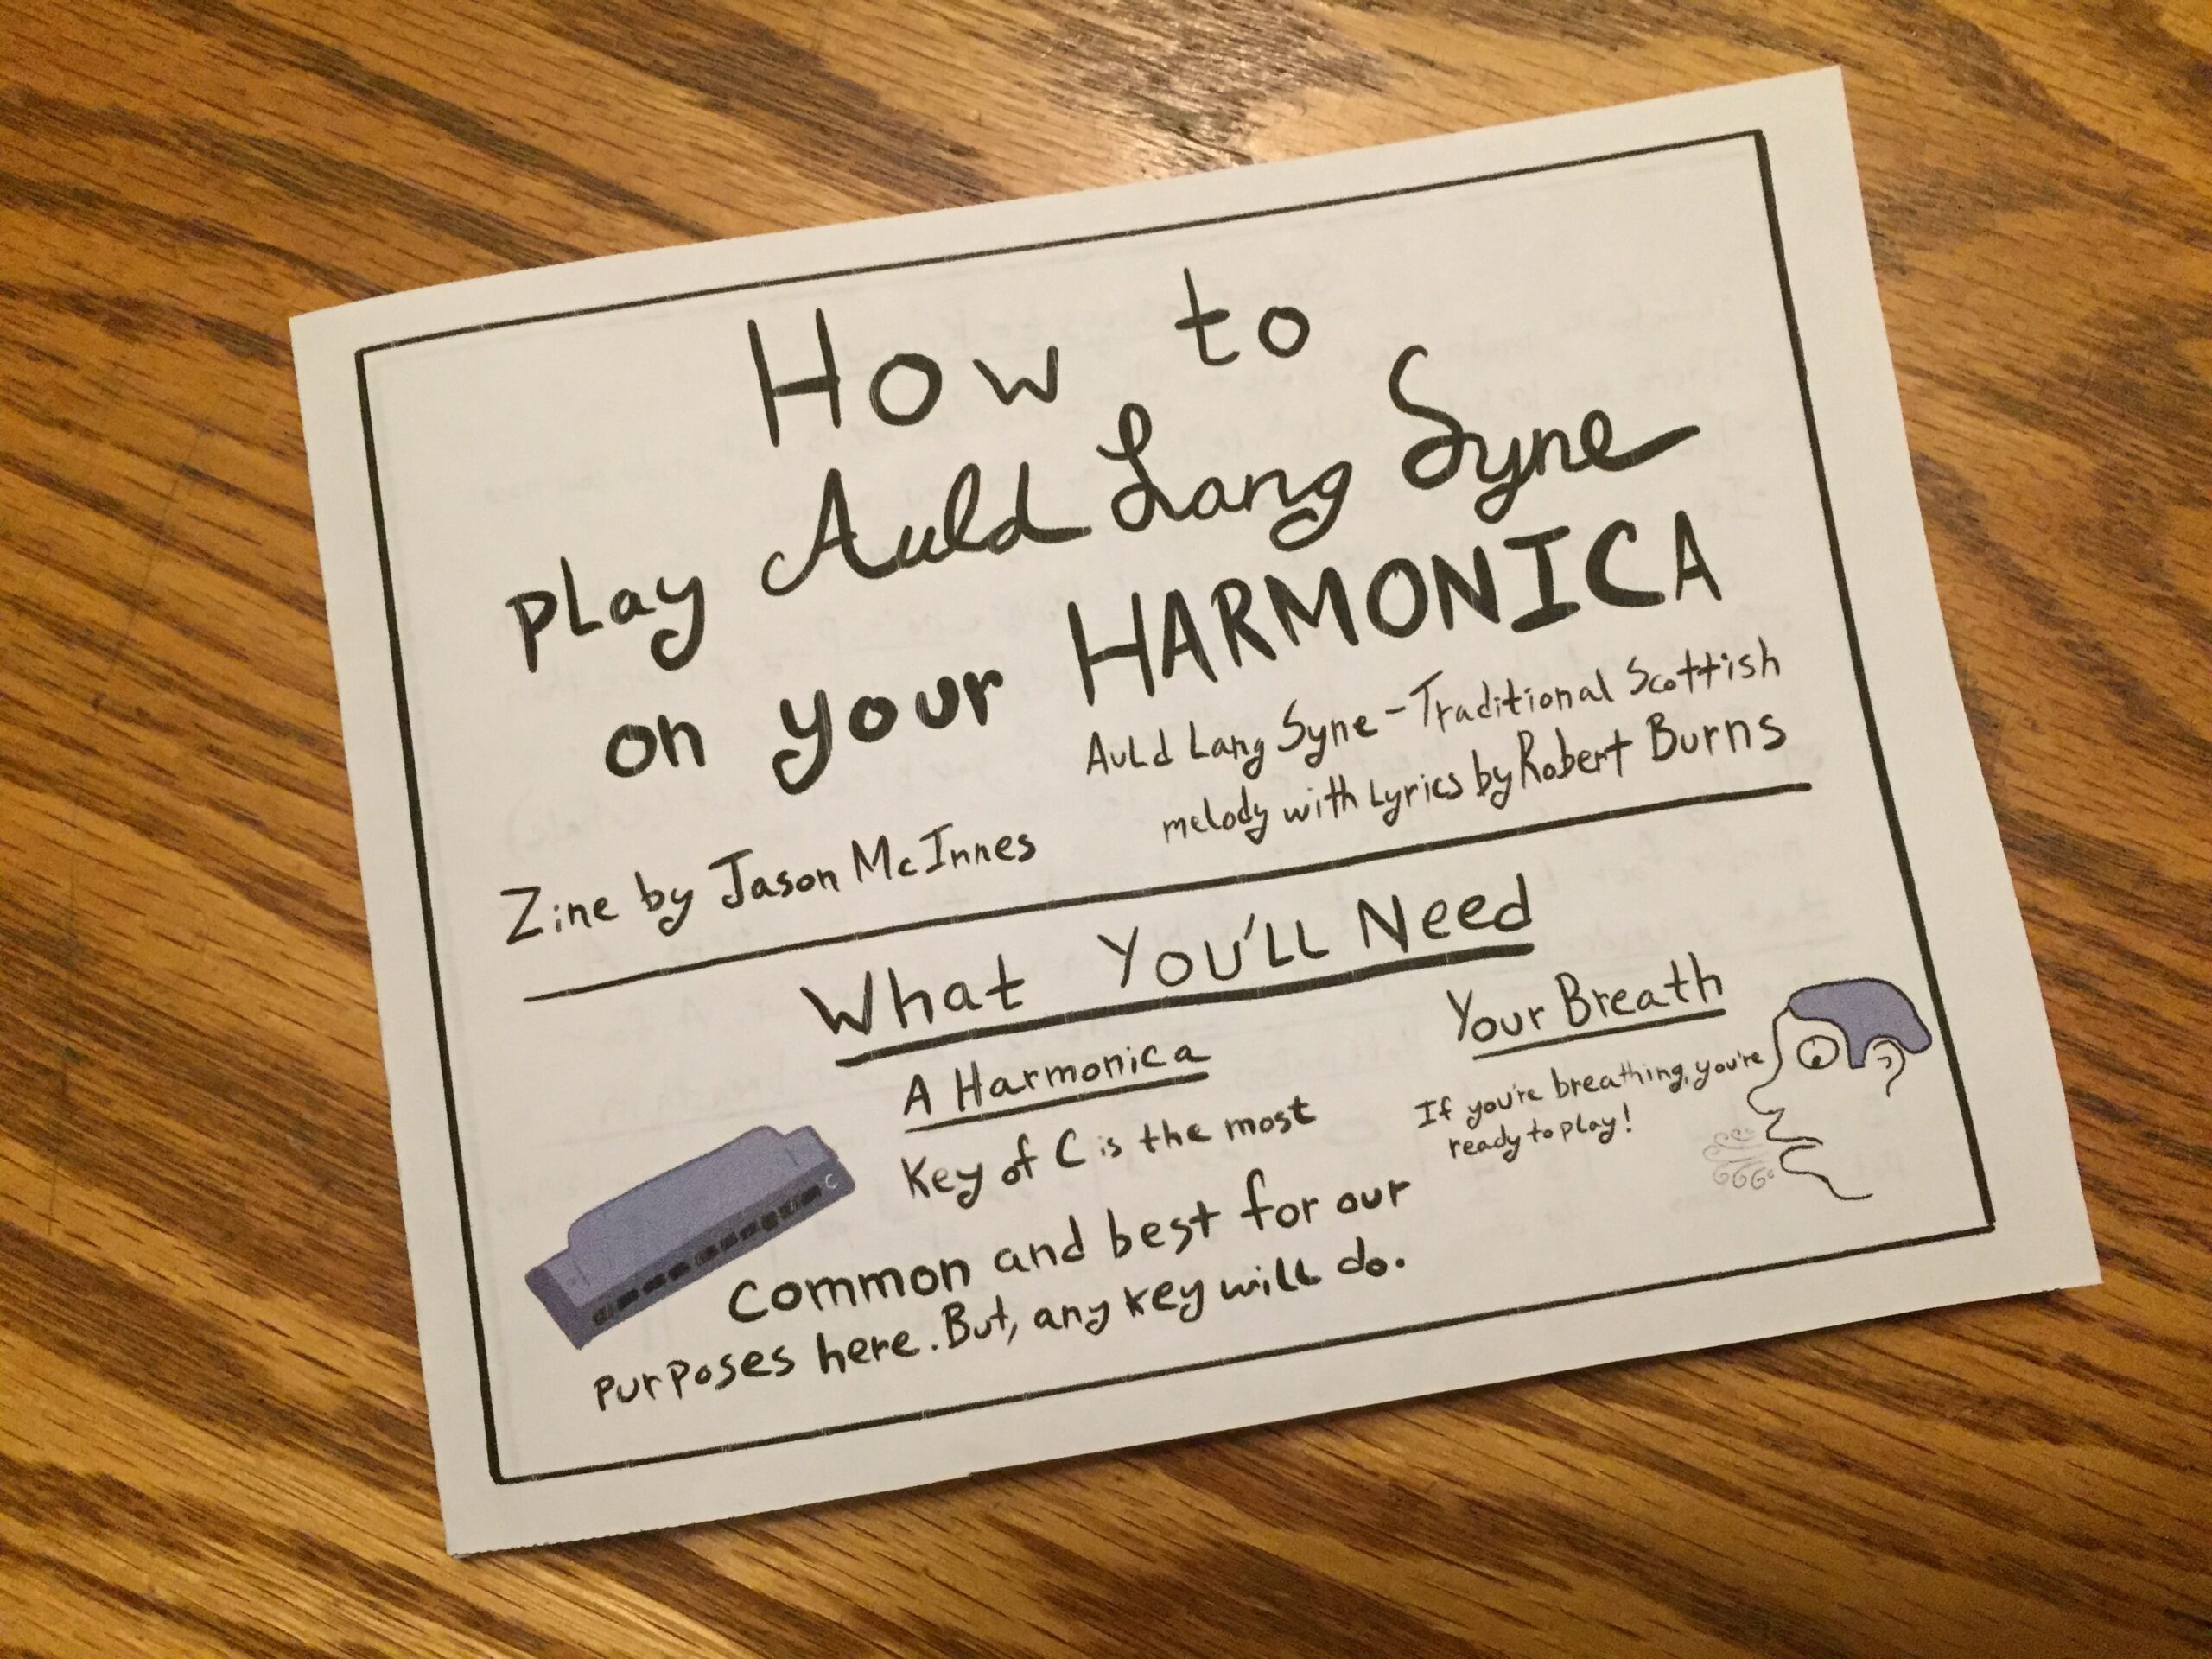 How to
PLay Auld Lang Syne
on your HARMONICA
AuLd Lang Syne - Traditional Scottish
melody with Lyrics by Robert Burns
Zine by Jason McInnes
What YoU'LL Need
A Harmonica
Key of C is the most
Common and best for our
purposes here. But, any key wiLL do.
Your Breath
If you're breathing, you're
ready to play!
C